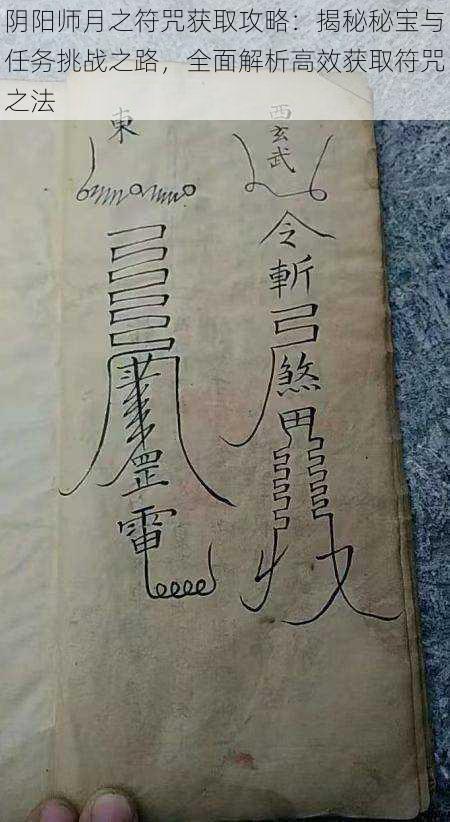 阴阳师月之符咒获取攻略：揭秘秘宝与
任务挑战之路，全面解析高效获取符咒
之法
西玄武
令斬弓煞
東
罡